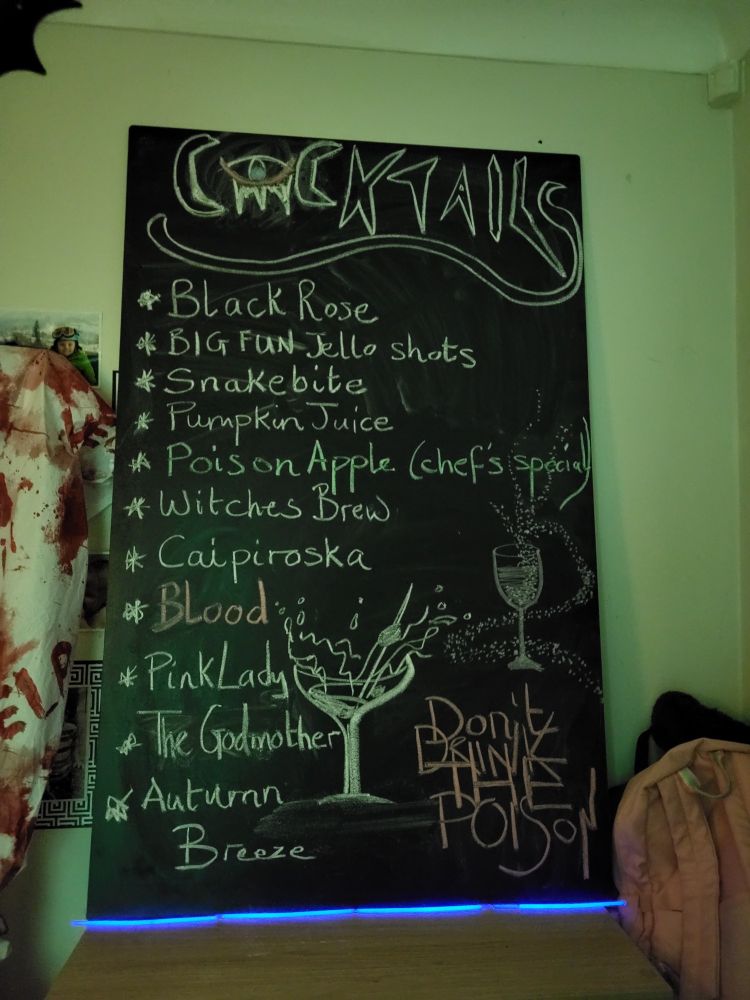 COCKTAILS
* Black Rose
* BIG FUN Jello shots
* Snakebite
* Pumpkin Juice
* Poison Apple (chef's special)
* Witches Brew
* Caipiroska
* Blood
* Pink Lady
* The Godmother
* Autumn
Breeze
Don't
DRINK
THE
POISON